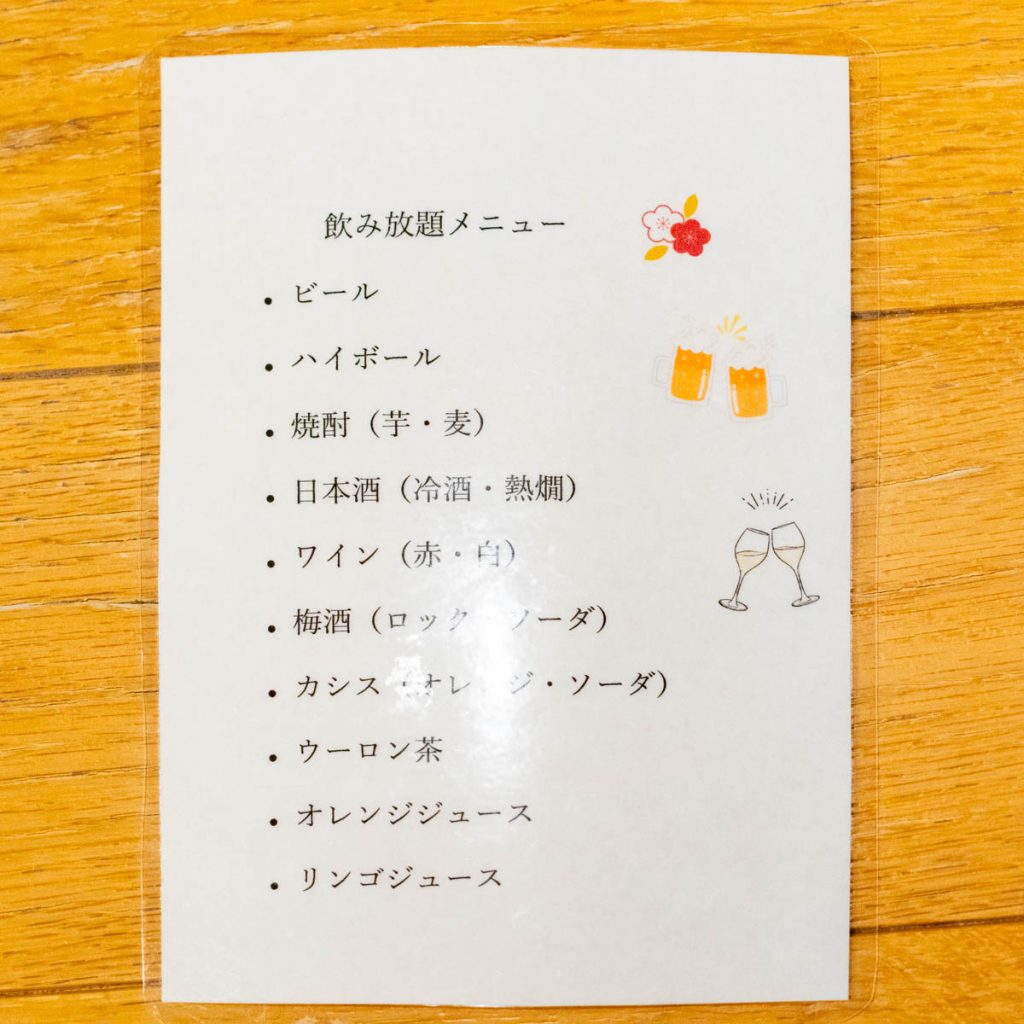 飲み放題メニュー
・ビール
・ハイボール
・焼酎（芋・麦）
・日本酒（冷酒・熱燗）
・ワイン（赤・白）
・梅酒（ロック・ソーダ）
・カシス（オレンジ・ソーダ）
・ウーロン茶
・オレンジジュース
・リンゴジュース